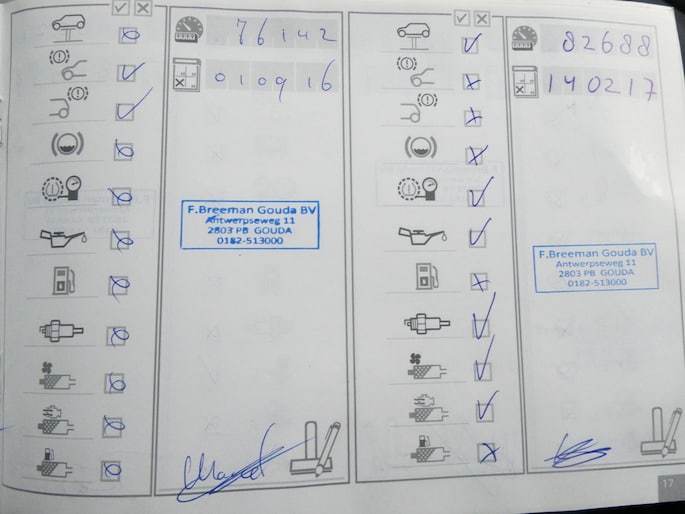 76142
010916
F.Breeman Gouda BV
Antwerpseweg 11
2803 PB GOUDA
0182-513000
82688
140217
F.Breeman Gouda BV
Antwerpseweg 11
2803 PB GOUDA
0182-513000
17